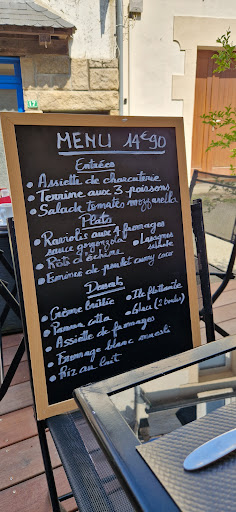 MENU 14€90
Entrées
• Assiette de charcuterie
• Terrine aux 3 poissons
• Salade tomates mozzarella
Plats
• Raviolis aux 4 fromages • Lasagnes
sauce gorgonzola
• Rôti d'échine
• Emincé de poulet curry coco
Dessert
• Crème brûlée • Ile flottante
• Panna cotta • Glace (2 boules)
• Assiette de fromages
• Fromage blanc
• Riz au lait